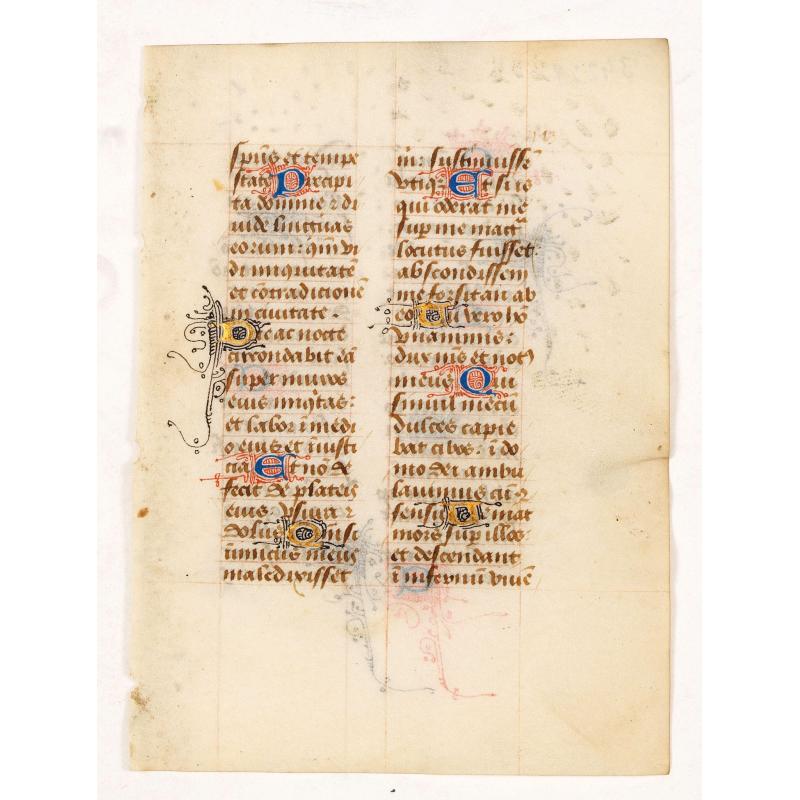 spūs et tempe
state Precipi
ta domine ⁊ di
uide linguas
eorum: qm̄ vi
di iniquitatē
et cōtradicionē
in ciuitate.
Die ac nocte
circondabit eā
super muros
eius iniqͥtas:
et labor ī medi
o eius et īiusti
cia Et nō de
fecit de plateis
eius vsura ⁊
dolus Qm̄ si
inimicus meus
maledixisset
m̄: sustinuissē
vtiqꝫ Et si is
qui oderat me
sup̄ me mag
locutus fuisset:
abscondissem
me forsitan ab
eo Tu vero hō
vnanimis:
dux m̄s et notꝰ
meus Qui
simul mecū
dulces capie
bat cibos: ī do
mo dei ambu
lauimus cū ⁊
sensu Veniat
mors sup̄ illos:
et descendant
ī infernū viuē